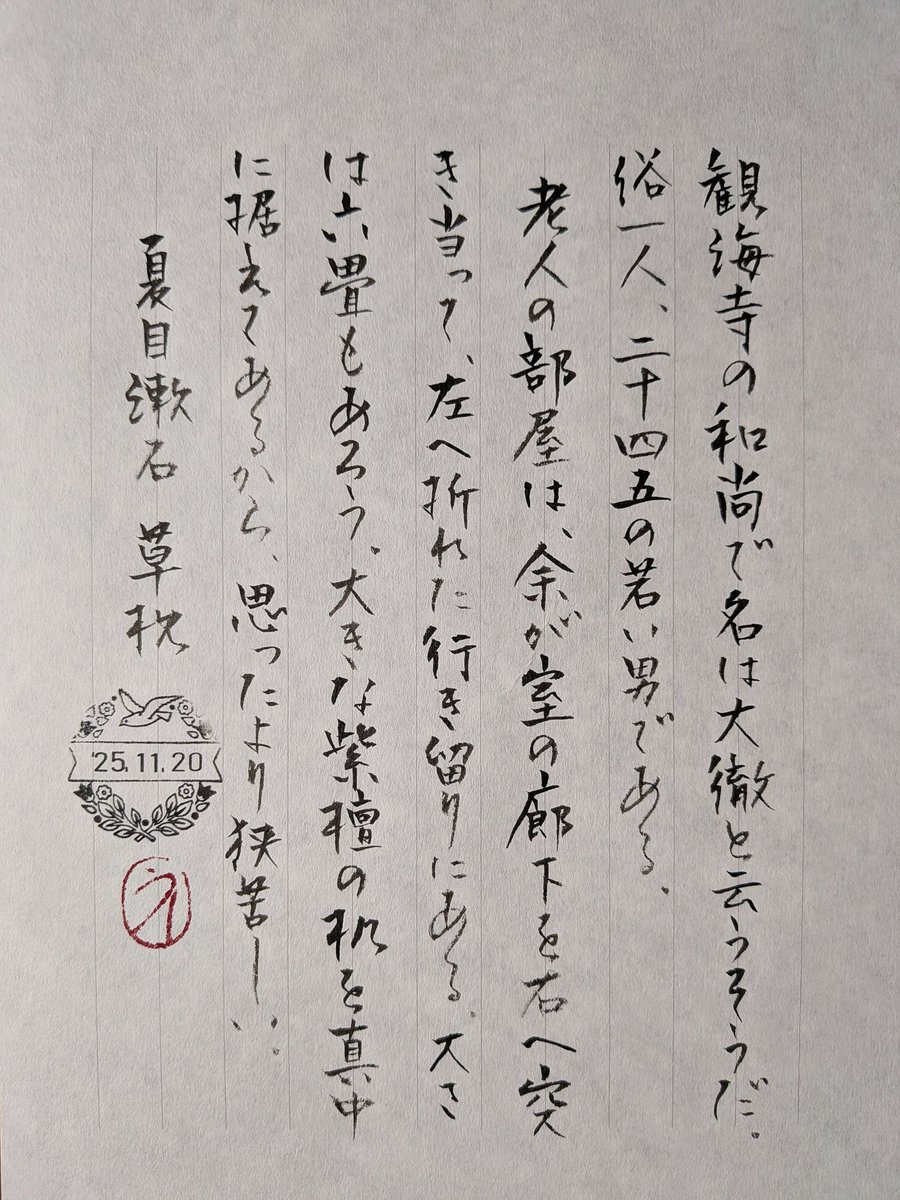 観海寺の和尚で名は大徹と云うそうだ。
俗一人、二十四五の若い男である。
老人の部屋は、余が室の廊下を右へ突
き当って、左へ折れた行き留りにある。大さ
は六畳もあろう。大きな紫檀の机を真中
に据えてあるから、思ったより狭苦しい。
夏目漱石 草枕
'25.11.20